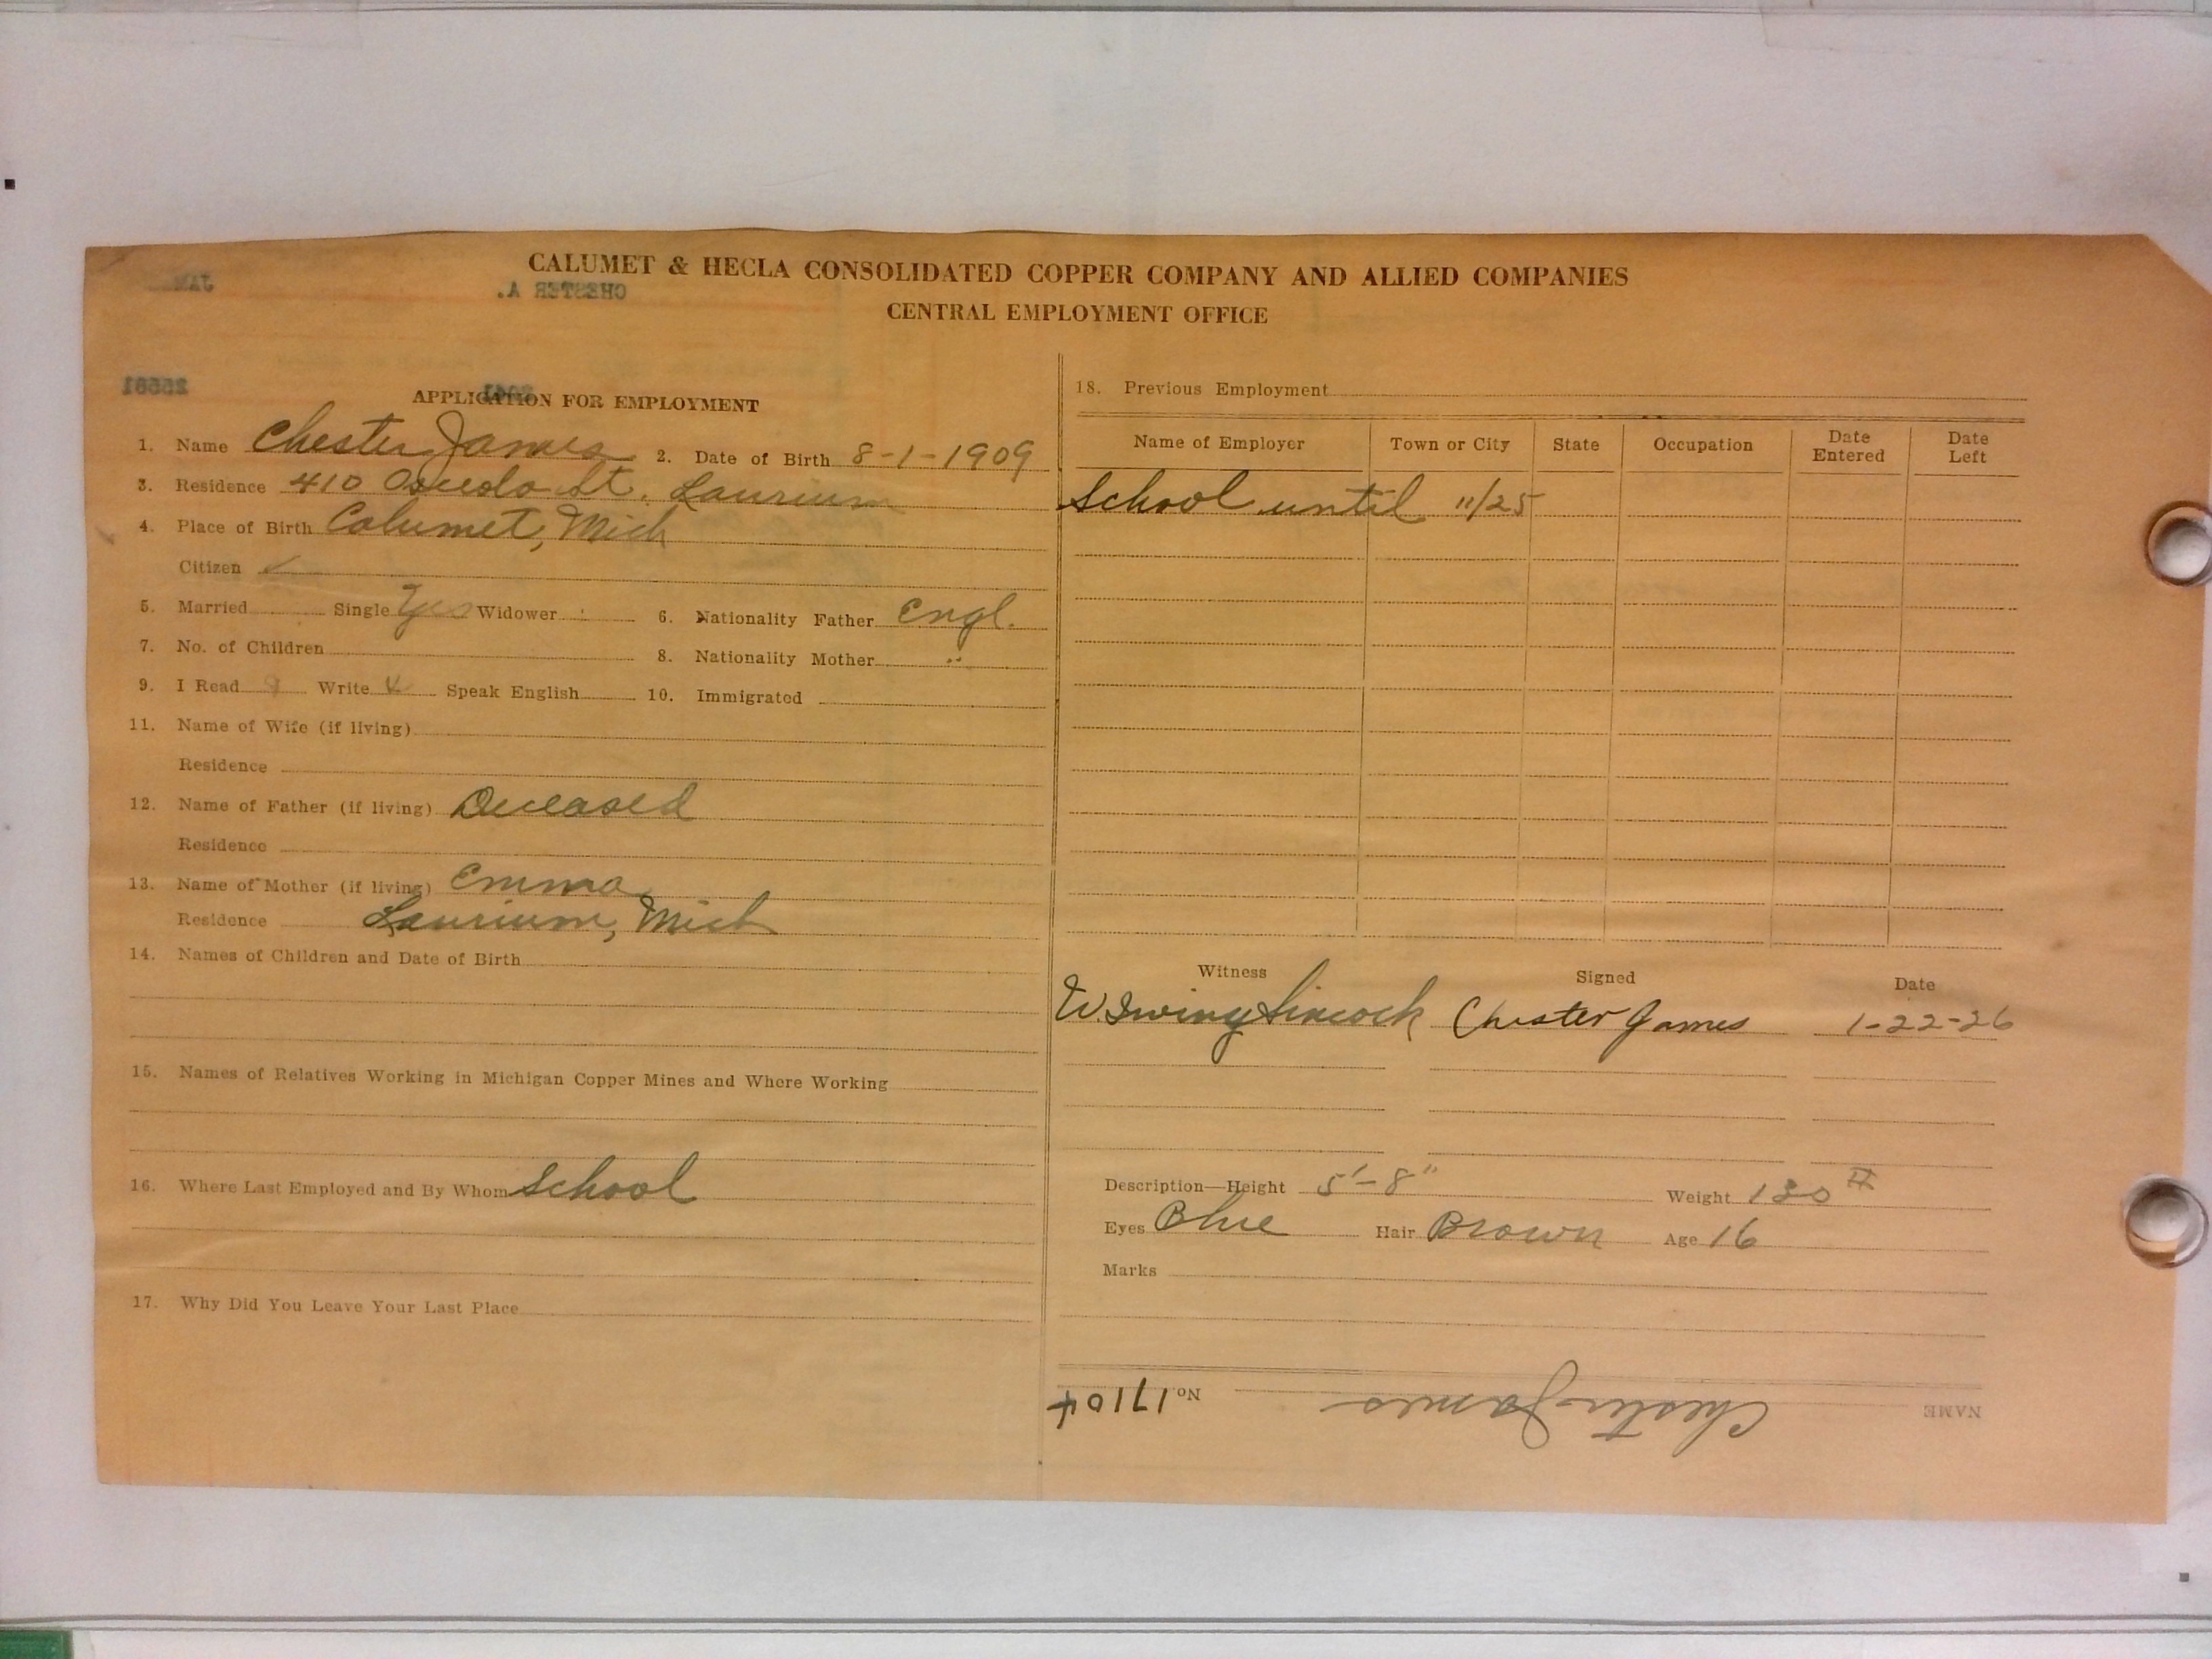 CALUMET & HECLA CONSOLIDATED COPPER COMPANY AND ALLIED COMPANIES
CHESTER A.
CENTRAL EMPLOYMENT OFFICE
25581
APPLICATION FOR EMPLOYMENT
1. Name Chester James 2. Date of Birth 8-1-1909
3. Residence 410 Osceola St. Laurium
4. Place of Birth Calumet, Mich
Citizen ✓
5. Married Single Yes Widower 6. Nationality Father Engl.
7. No. of Children 8. Nationality Mother "
9. I Read Write Speak English 10. Immigrated
11. Name of Wife (if living)
Residence
12. Name of Father (if living) Deceased
Residence
13. Name of Mother (if living) Emma
Residence Laurium, Mich
14. Names of Children and Date of Birth
15. Names of Relatives Working in Michigan Copper Mines and Where Working
16. Where Last Employed and By Whom School
17. Why Did You Leave Your Last Place
18. Previous Employment
Name of Employer Town or City State Occupation Date Entered Date Left
School until 11/25
Witness Signed Date
W. Irving Sincock Chester James 1-22-26
Description—Height 5'-8" Weight 130 #
Eyes Blue Hair Brown Age 16
Marks
NAME Chester James No. 17104